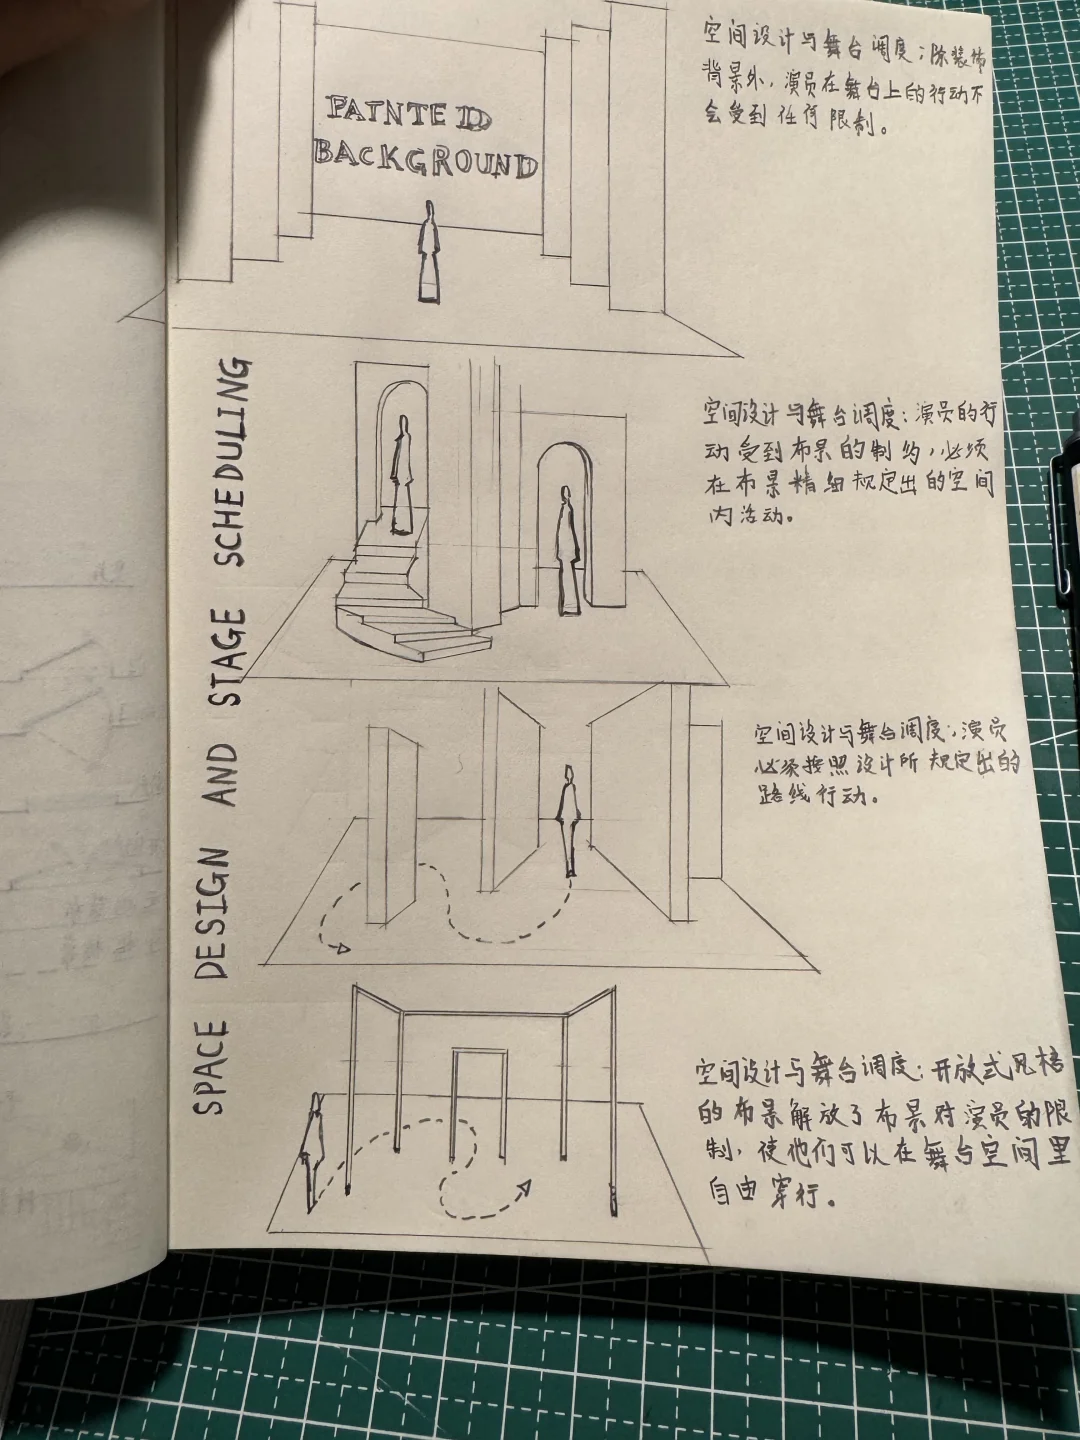 PAINTED
BACKGROUND
空间设计与舞台调度：除装饰
背景外，演员在舞台上的行动不
会受到任何限制。
SPACE DESIGN AND STAGE SCHEDULING
空间设计与舞台调度：演员的行
动受到布景的制约，必须
在布景精细规定出的空间
内活动。
空间设计与舞台调度：演员
必须按照设计所规定出的
路线行动。
空间设计与舞台调度：开放式风格
的布景解放了布景对演员的限
制，使他们可以在舞台空间里
自由穿行。